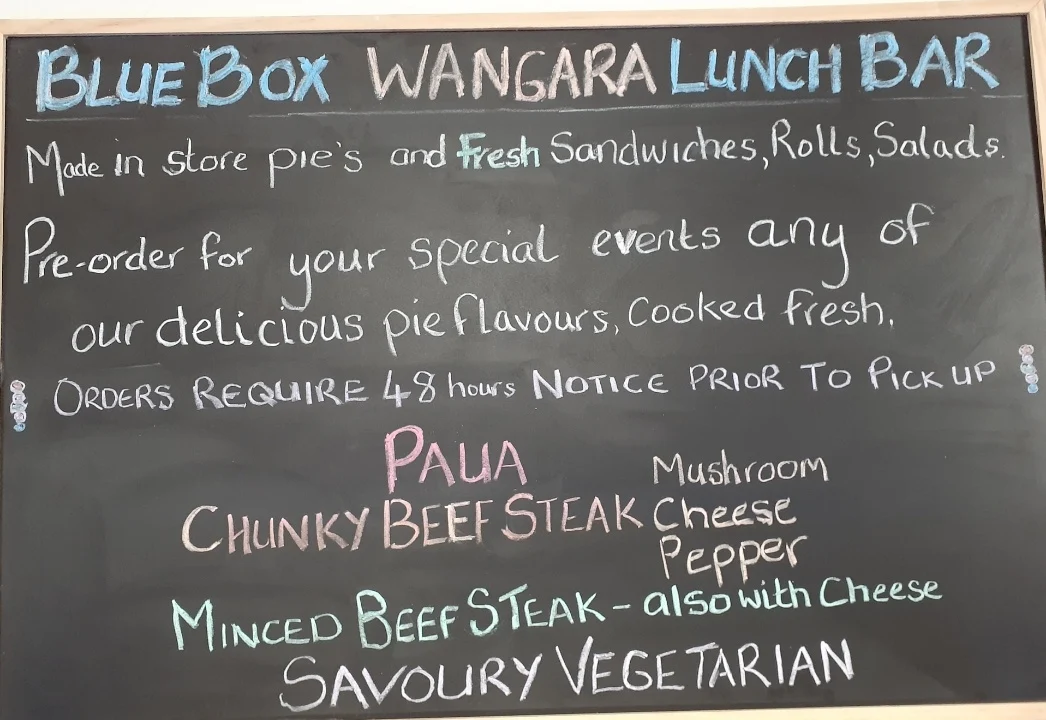 BLUE BOX WANGARA LUNCH BAR
Made in store pie's and fresh Sandwiches, Rolls, Salads.
Pre-order for your special events any of
our delicious pie flavours, Cooked fresh.
ORDERS REQUIRE 48 hours NOTICE PRIOR TO PICK UP
PAUA
Mushroom
CHUNKY BEEF STEAK Cheese
Pepper
MINCED BEEF STEAK - also with Cheese
SAVOURY VEGETARIAN